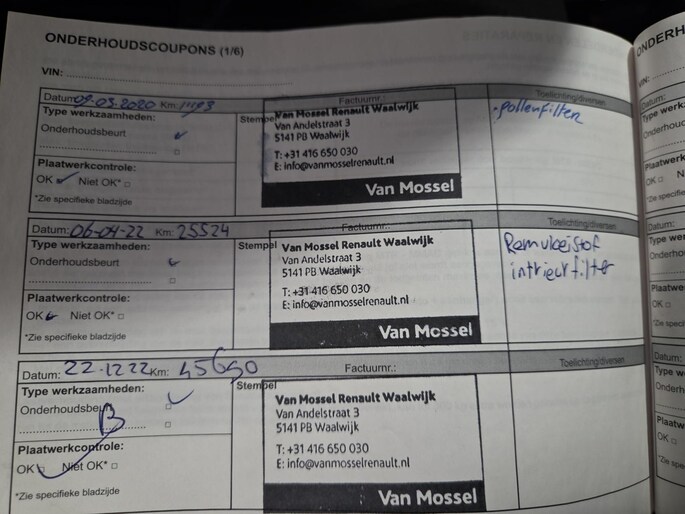 ONDERHOUDSCOUPONS (1/6)
VIN:
Datum: 09-03-2020 Km: 11193 Factuurnr.: Toelichting/diversen
Type werkzaamheden:
Onderhoudsbeurt
Stempel
Van Mossel Renault Waalwijk
Van Andelstraat 3
5141 PB Waalwijk
T: +31 416 650 030
E: info@vanmosselrenault.nl
Van Mossel
- pollenfilter
Plaatwerkcontrole:
OK Niet OK*
*Zie specifieke bladzijde
Datum: 06-04-22 Km: 25524 Factuurnr.: Toelichting/diversen
Type werkzaamheden:
Onderhoudsbeurt
Stempel
Van Mossel Renault Waalwijk
Van Andelstraat 3
5141 PB Waalwijk
T: +31 416 650 030
E: info@vanmosselrenault.nl
Van Mossel
Remvloeistof
intrieurfilter
Plaatwerkcontrole:
OK Niet OK*
*Zie specifieke bladzijde
Datum: 22-12 22 Km: 45690 Factuurnr.: Toelichting/diversen
Type werkzaamheden:
Onderhoudsbeurt
B
Stempel
Van Mossel Renault Waalwijk
Van Andelstraat 3
5141 PB Waalwijk
T: +31 416 650 030
E: info@vanmosselrenault.nl
Van Mossel
Plaatwerkcontrole:
OK Niet OK*
*Zie specifieke bladzijde